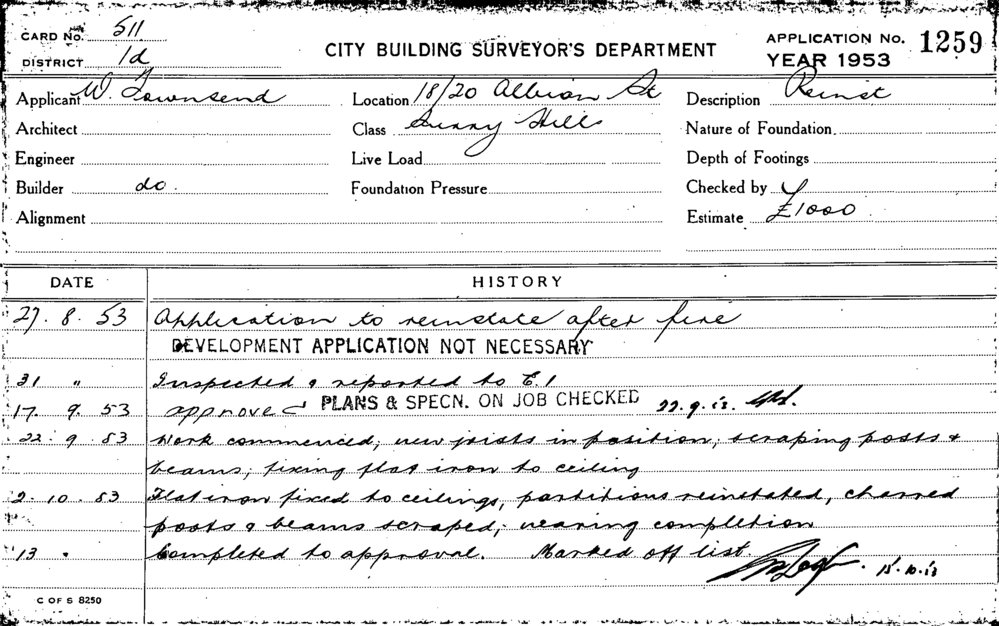 CARD No. 511
DISTRICT 1d
CITY BUILDING SURVEYOR'S DEPARTMENT
APPLICATION No. 1259
YEAR 1953
Applicant W. Townsend
Location 18/20 Albion St
Description Reinst
Architect
Class Surry Hills
Nature of Foundation
Engineer
Live Load
Depth of Footings
Builder do.
Foundation Pressure
Checked by
Alignment
Estimate £1000
DATE HISTORY
27. 8. 53 Application to reinstate after fire
DEVELOPMENT APPLICATION NOT NECESSARY
31 " Inspected & reported to E.1
17. 9. 53 approved PLANS & SPECN. ON JOB CHECKED 22.9.53.
22. 9. 53 Work commenced; new joists in position; scraping posts &
beams; fixing flat iron to ceiling
2. 10. 53 Flat iron fixed to ceilings, partitions reinstated, charred
posts & beams scraped; nearing completion
13 " Completed to approval. Marked off list.
15.10.53
C OF S 8250